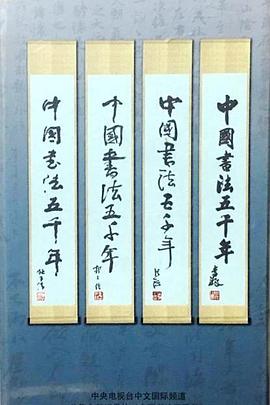 中國書法五千年
中国書法五千年
中國書法五千年
中国书法五千年
中央电视台中文国际频道